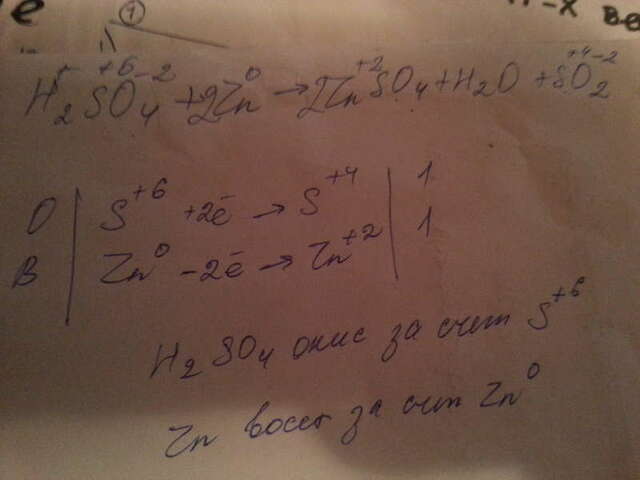 е ① в.е
H₂⁺S⁺⁶O₄⁻² + 2Zn⁰ → 2Zn⁺²SO₄ + H₂O + S⁺⁴O₂⁻²
О | S⁺⁶ +2ē → S⁺⁴ | 1
В | Zn⁰ -2ē → Zn⁺² | 1
H₂SO₄ окис за счет S⁺⁶
Zn восст за счет Zn⁰